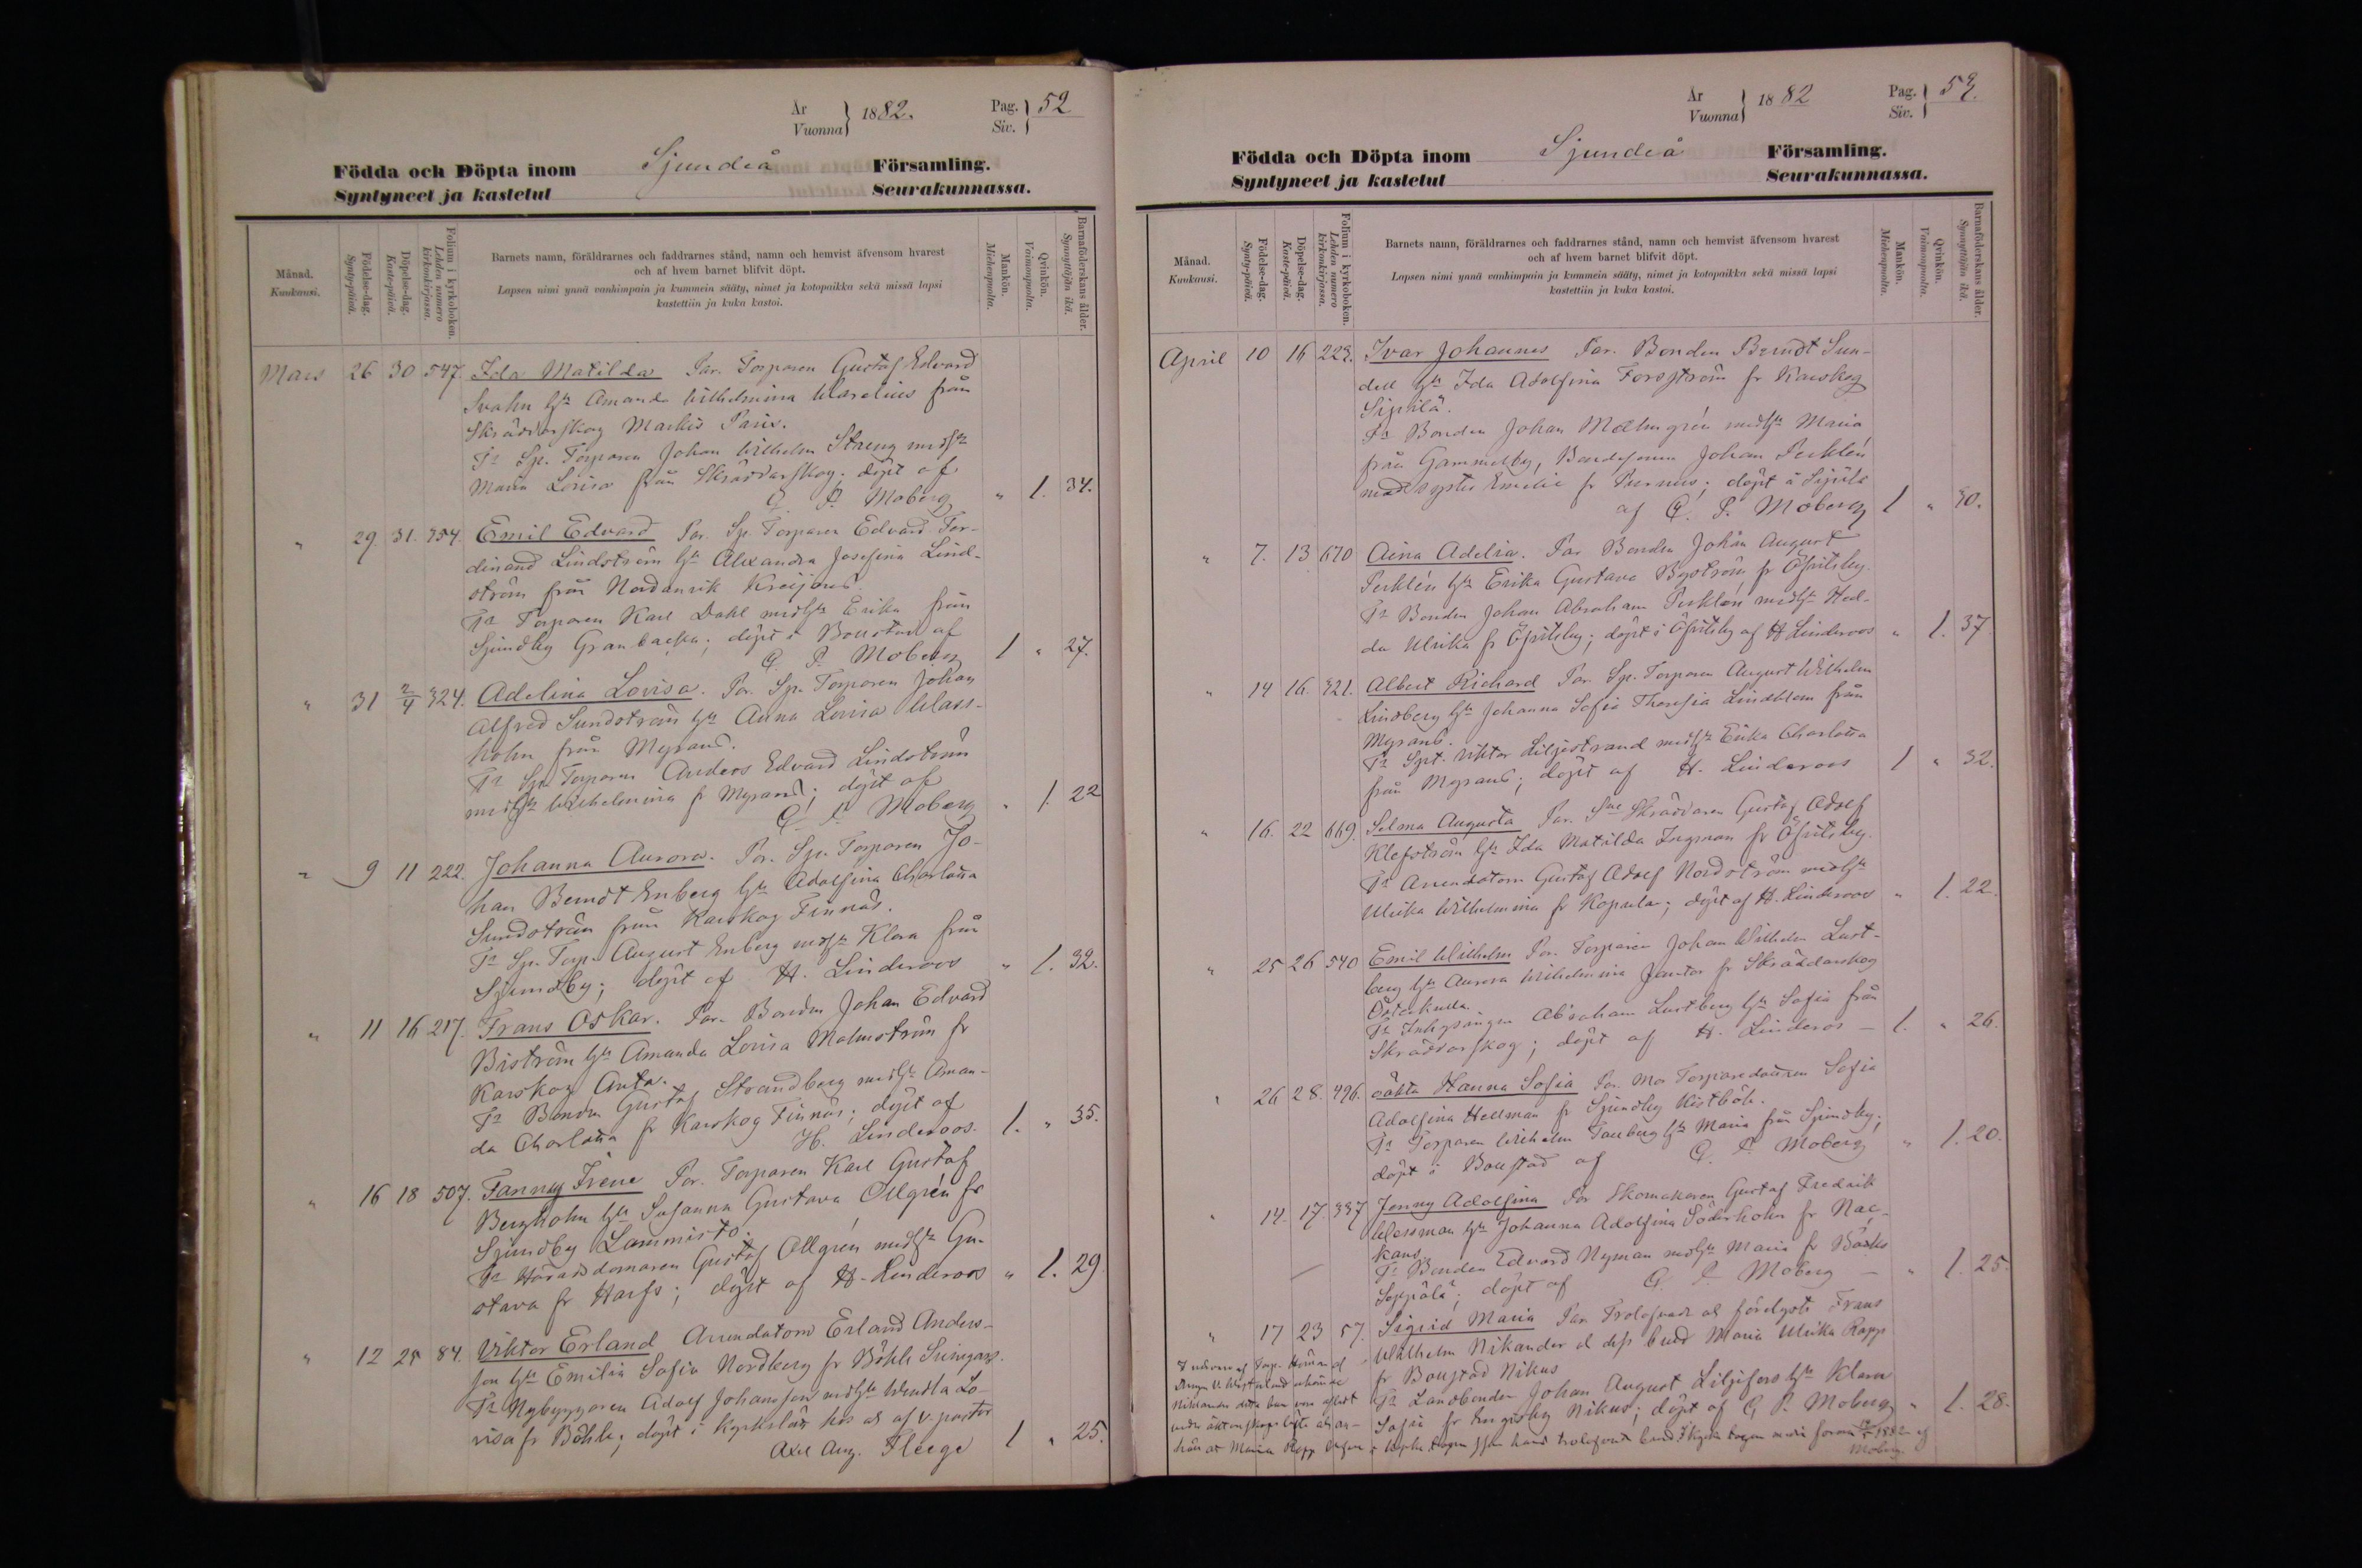 År
Vuonna
1882.
Pag.
Siv.
52
Födda och Döpta inom Sjundeå Församling.
Syntyneet ja kastetut Seurakunnassa.
Månad.
Kuukausi.
Födelse-dag.
Synty-päivä.
Döpelse-dag.
Kaste-päivä.
Folium i kyrkoboken.
Lehden numero kirkonkirjassa.
Barnets namn, föräldrarnes och faddrarnes stånd, namn och hemvist äfvensom hvarest
och af hvem barnet blifvit döpt.
Lapsen nimi ynnä vanhimpain ja kummein sääty, nimet ja kotopaikka sekä missä lapsi
kastettiin ja kuka kastoi.
Mankön.
Miehenpuolta.
Qvinkön.
Vaimonpuolta.
Barnaföderskans ålder.
Synnyttäjän ikä.
Mars 26 30 547. Ida Matilda Par. Torparen Gustaf Edvard
Svahn hu Amanda Wilhelmina Warelius från
Skräddarskog Markis Paris.
Fr Sp. Torparen Johan Wilhelm Streng med hu
Maria Lovisa från Skräddarskog; döpt af
G. P. Moberg " 1. 34.
" 29. 31. 354. Emil Edvard Par. Sp. Torparen Edvard Fer-
dinand Lindström hu Alexandra Josefina Lind-
ström från Nordanvik
Fr Torparen Karl Dahl med hu Erika från
Sjundby Granbacka; döpt i Boustad af
G. P. Moberg 1 " 27.
" 31 2/4 324. Adelina Lovisa. Par. Sp. Torparen Johan
Alfred Sundström hu Anna Lovisa Wass-
holm från Myrans.
Fr Sp. Torparen Anders Edvard Lindström
med hu Wilhelmina fr Myrans; döpt af
G. P. Moberg " 1. 22
" 9 11 222. Johanna Aurora. Par. Sp. Torparen Jo-
han Berndt Enberg hu Adolfina Charlotta
Sundström från Karskog Finnäs.
Fr Sp. Torp. August Enberg med hu Klara från
Sjundby; döpt af H. Linderoos " 1. 32.
" 11 16 217. Frans Oskar. Par. Bonden Johan Edvard
Biström hu Amanda Lovisa Malmström fr
Karskog Anta.
Fr Bonden Gustaf Strandberg med hu Aman-
da Charlotta fr Karskog Finnäs; döpt af
H. Linderoos. 1. " 35.
" 16 18 507. Fanny Irene Par. Torparen Karl Gustaf
Bergholm hu Susanna Gustava Ollgrén fr
Sjundby Lammisto.
Fr Häradsdomaren Gustaf Ollgrén med hu Gu-
stava fr Harfs; döpt af H. Linderoos " 1. 29
" 12 25 84. Viktor Erland Arrendatorn Erland Anders-
son hu Emilia Sofia Nordberg fr Böhle
Fr Nybyggaren Adolf Johansson med hu Wendla Lo-
visa fr Böhle; döpt i Kyrkslätt hos och af v. pastor
Axel Aug. Fleege 1 " 25.
År
Vuonna
1882
Pag.
Siv.
53.
Födda och Döpta inom Sjundeå Församling.
Syntyneet ja kastetut Seurakunnassa.
Månad.
Kuukausi.
Födelse-dag.
Synty-päivä.
Döpelse-dag.
Kaste-päivä.
Folium i kyrkoboken.
Lehden numero kirkonkirjassa.
Barnets namn, föräldrarnes och faddrarnes stånd, namn och hemvist äfvensom hvarest
och af hvem barnet blifvit döpt.
Lapsen nimi ynnä vanhimpain ja kummein sääty, nimet ja kotopaikka sekä missä lapsi
kastettiin ja kuka kastoi.
Mankön.
Miehenpuolta.
Qvinkön.
Vaimonpuolta.
Barnaföderskans ålder.
Synnyttäjän ikä.
April 10 16 223. Ivar Johannes Par. Bonden Berndt Sun-
dell hu Ida Adolfina Forsström fr Karskog
Sipilä.
Fr Bonden Johan Malmgrén med hu Maria
från Gammelby, Bondesonen Johan Perklén
med syster Emilie fr Purnus; döpt i Sipilä
af G. P. Moberg 1 " 30.
" 7. 13 670 Aina Adelia. Par Bonden Johan August
Perklén hu Erika Gustava Byström fr Öfvitsby.
Fr Bonden Johan Abraham Perklén med hu Hed-
da Ulrika fr Öfvitsby; döpt i Öfvitsby af H Linderoos " 1. 37.
" 14 16. 321. Albert Richard Par. Sp. Torparen August Wilhelm
Lindberg hu Johanna Sofia Theresia Lindblom från
Myrans.
Fr Spt. Viktor Liljestrand med hu Erika Charlotta
från Myrans; döpt af H. Linderoos 1 " 32.
" 16. 22 669. Selma Augusta Par. Skräddaren Gustaf Adolf
Klefström hu Ida Matilda Ingman fr Öfvitsby.
Fr Arrendatorn Gustaf Adolf Nordström med hu
Ulrika Wilhelmina fr Kopula; döpt af H. Linderoos " 1. 22.
" 25 26 540 Emil Wilhelm Par. Torparen Johan Wilhelm Lust-
berg hu Aurora Wilhelmina Jantor fr Skräddarskog
Österkulla.
Fr Inhysingen Abraham Lustberg hu Sofia från
Skräddarskog; döpt af H. Linderos – 1. " 26.
" 26 28. 496. oäkta Hanna Sofia Par. Mo Torparedottren Sofia
Adolfina Hellman fr Sjundby Kistböle.
Fr Torparen Wilhelm Tauberg hu Maria från Sjundby;
döpt i Boustad af G. P. Moberg " 1. 20.
" 14. 17. 337 Jenny Adolfina Par Skomakaren Gustaf Fredrik
Wessman hu Johanna Adolfina Söderholm fr Nac-
kans.
Fr Bonden Edvard Nyman med hu Maria fr Bäcks
Seppälä; döpt af G. P. Moberg – " 1. 25.
" 17 23 57. Sigrid Maria Par. Trolofvade och förelyste Frans
Wilhelm Nikander och dess brud Maria Ulrika Rapp
fr Boustad Nikus
Fr Landbonden Johan August Liljefors hu Klara
Sofia fr Engisby Nikus; döpt af G. P. Moberg " 1. 28.